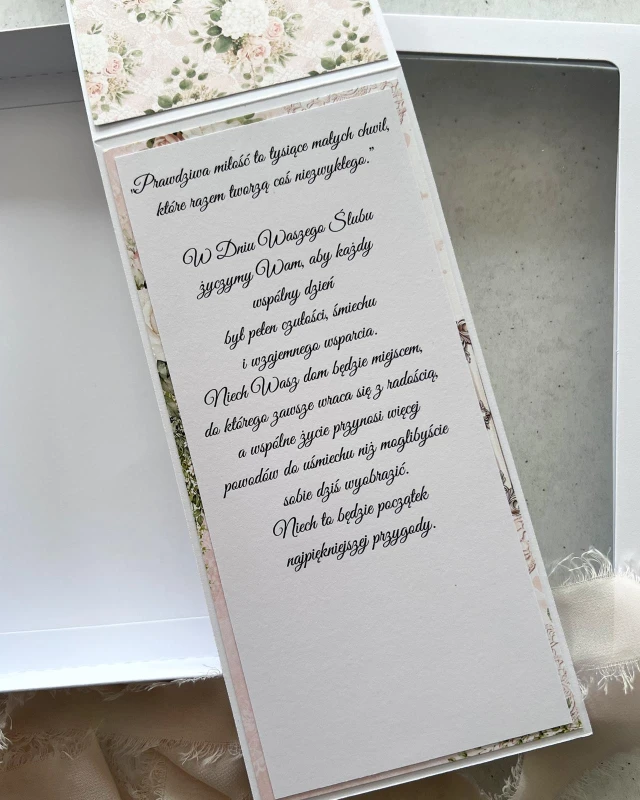 „Prawdziwa miłość to tysiące małych chwil,
które razem tworzą coś niezwykłego.”
W Dniu Waszego Ślubu
życzymy Wam, aby każdy
wspólny dzień
był pełen czułości, śmiechu
i wzajemnego wsparcia.
Niech Wasz dom będzie miejscem,
do którego zawsze wraca się z radością,
a wspólne życie przynosi więcej
powodów do uśmiechu niż moglibyście
sobie dziś wyobrazić.
Niech to będzie początek
najpiękniejszej przygody.